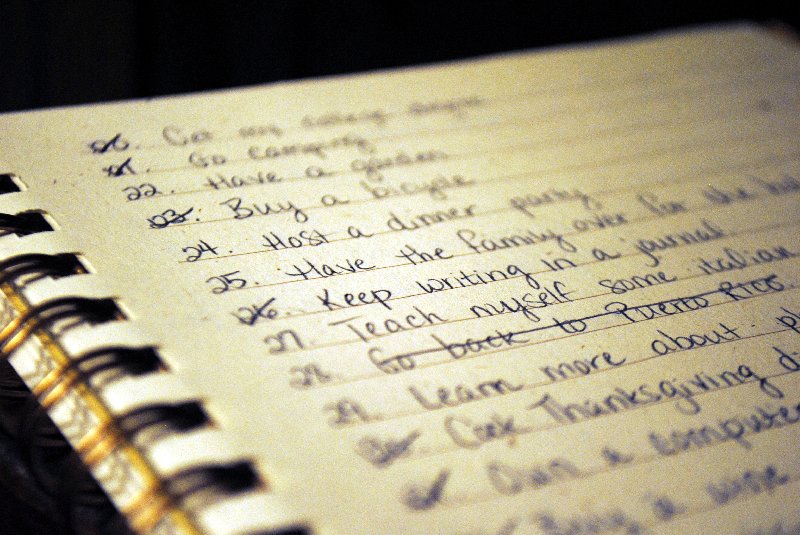 20. Get my
21. Go camping
22. Have a garden
23. Buy a bicycle
24. Host a dinner party
25. Have the family over for the
26. Keep writing in a journal
27. Teach myself some italian
28. Go back to Puerto Rico
29. Learn more about
30. Cook Thanksgiving
Own a computer
Buy a